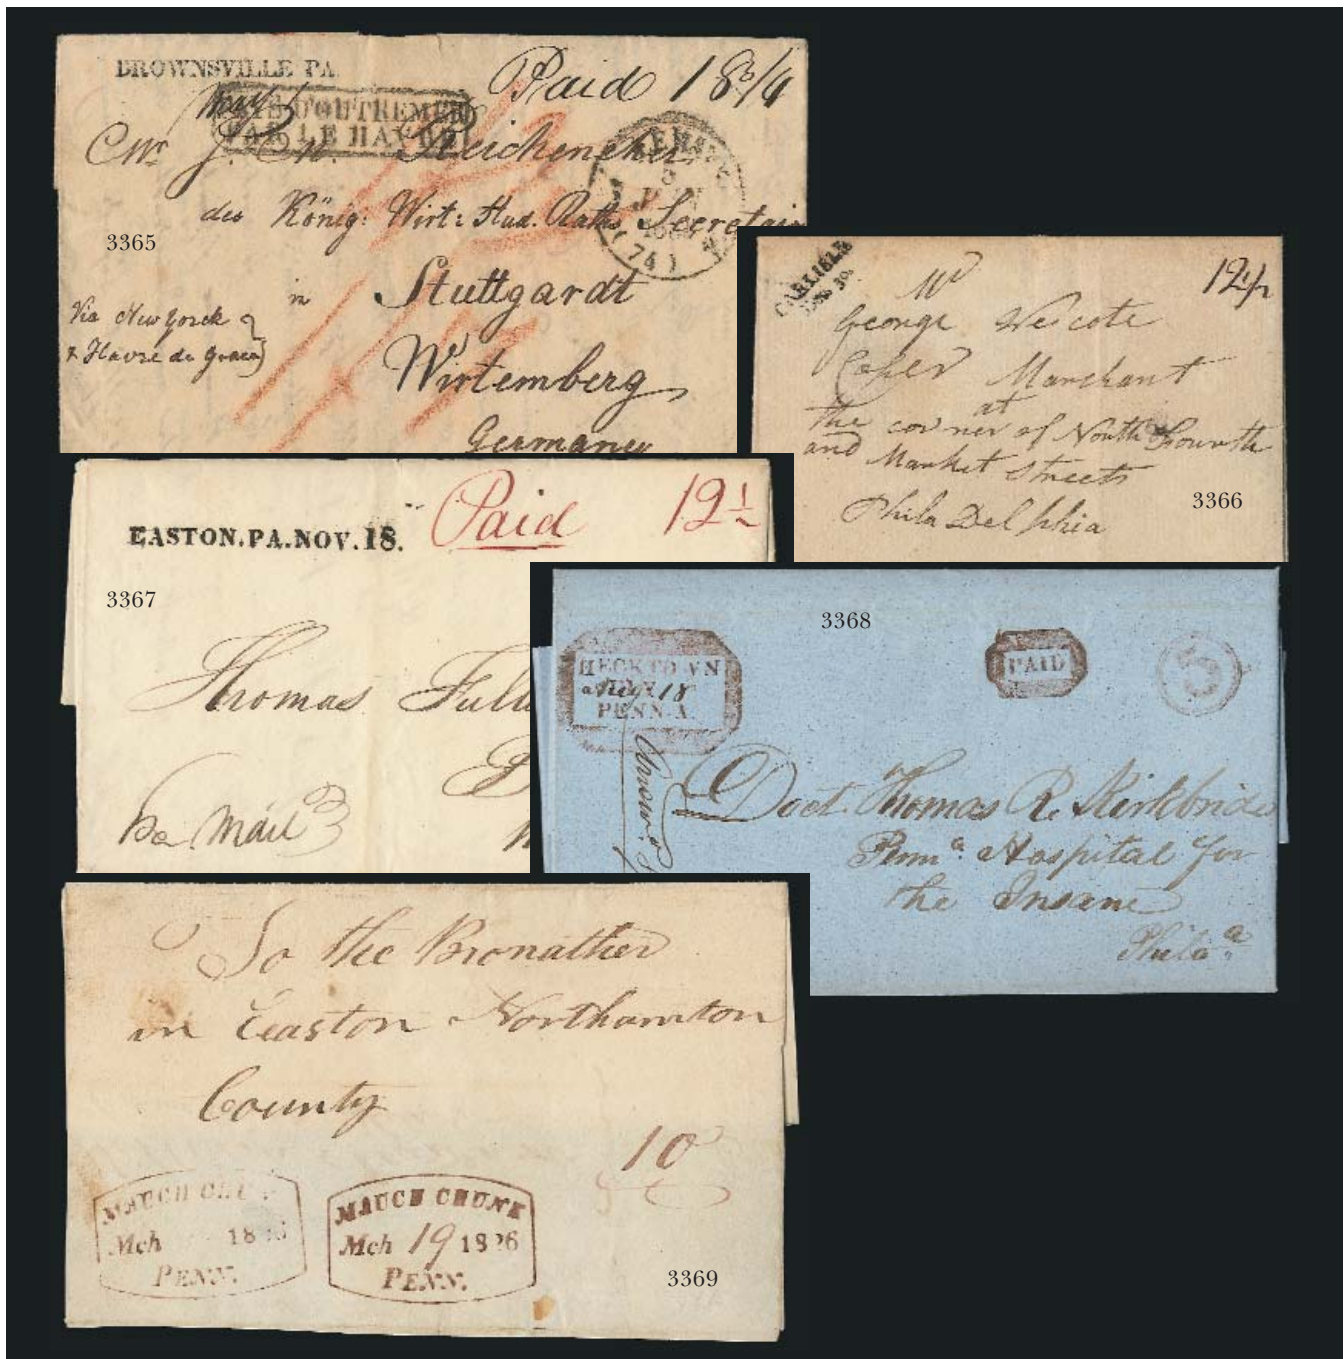 BROWNSVILLE PA.
Paid 18 3/4
PAYS D'OUTREMER
PAR LE HAVRE
J.
des König: Wirt: Stud. Raths Secretair
3365
(74)
in Stuttgardt
Via New Yorck
& Havre de Grace
Wirtemberg
Germaney
CARLISLE
30.
12 1/2
Mr
George Nescote
Marchant
at
the corner of North Fourth
and Market Streets
3366
Phila Del phia
EASTON.PA.NOV.18.
Paid 12 1/2
3367
Thomas Full
Pr. Mail
3368
HECKTOWN
Aug 18
PENN.A.
PAID
Doct. Thomas R. Kirkbride
Penna. Hospital for
the Insane
Phila.
To the Pronather
in Easton Northamton
County
10
MAUCH CHUNK
Mch 1826
PENN.
MAUCH CHUNK
Mch 19 1826
PENN.
3369